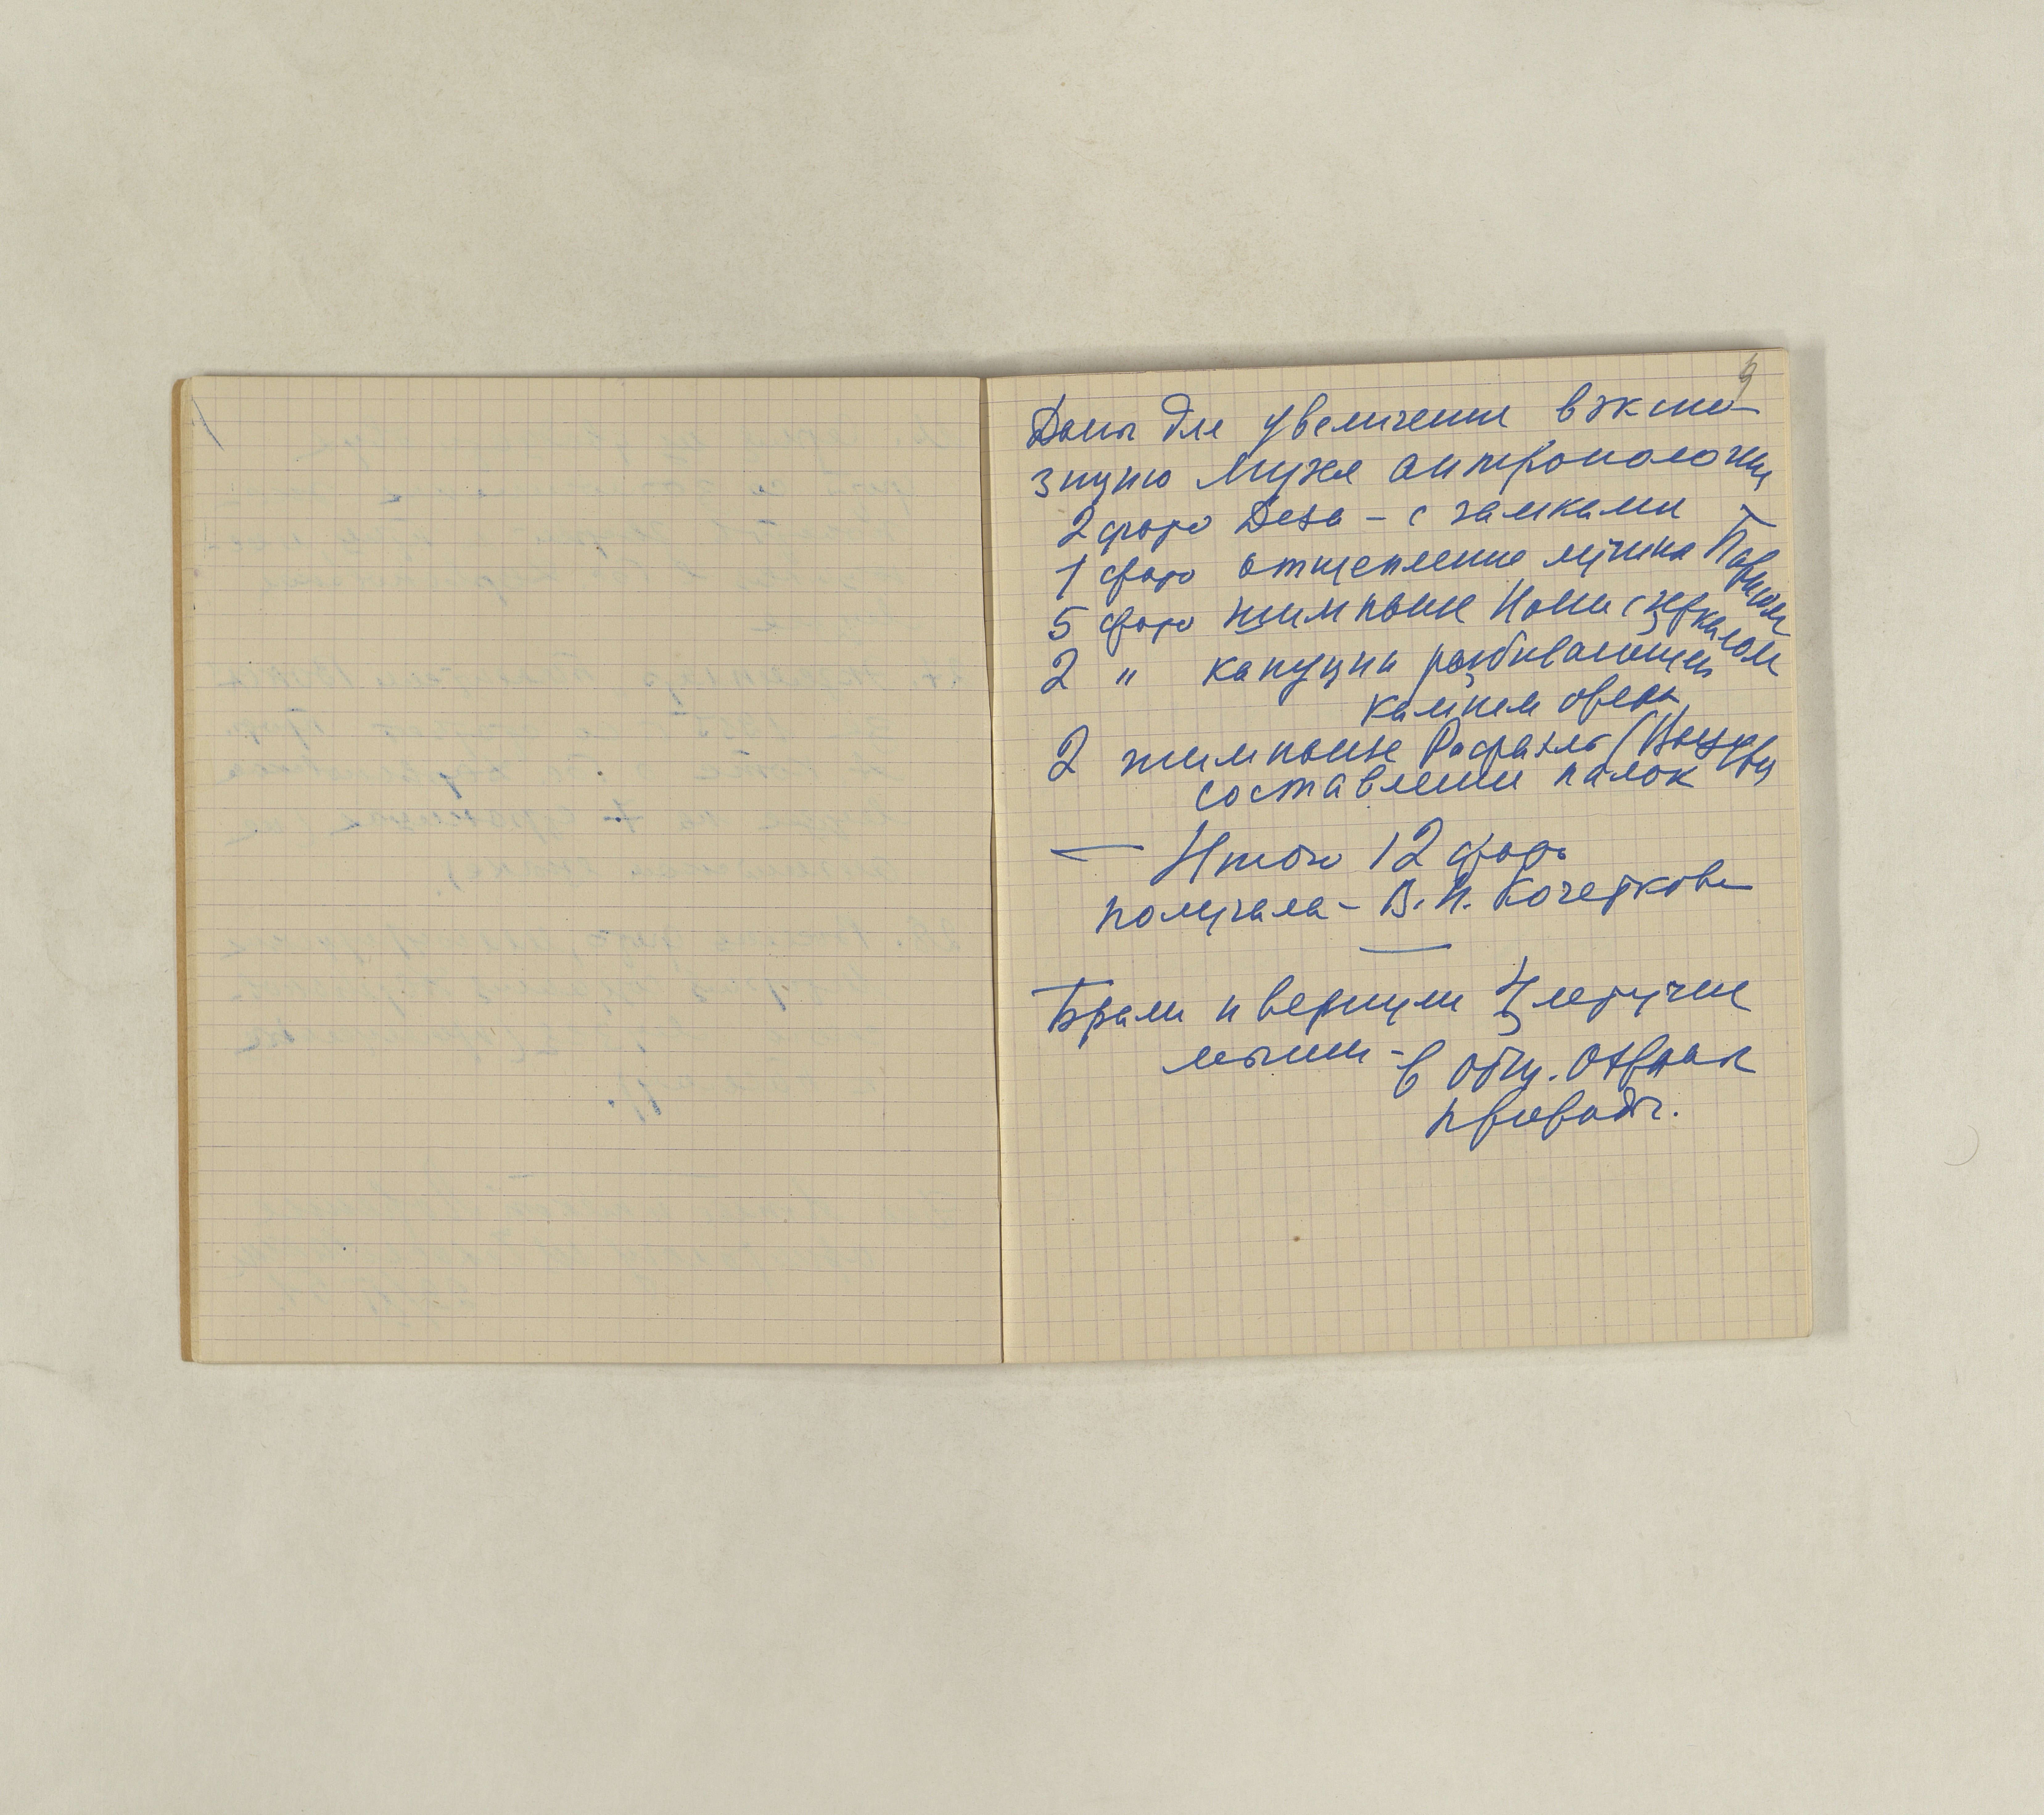 9
Даны для увеличения в экспо-
зицию Музея антропологии
2 фото Деза – с замками
1 фото отщепление лучины Парисом
5 фото шимпанзе Иони с зеркалом
2 " капуцин разбивающий
камнем орех
2 шимпанзе Рафаэль
составлении палок
— Итого 12 фото
получала – В. И. Кочеткова
Брали и вернули 4 летучие
мыши – в общ. охраны
природы.